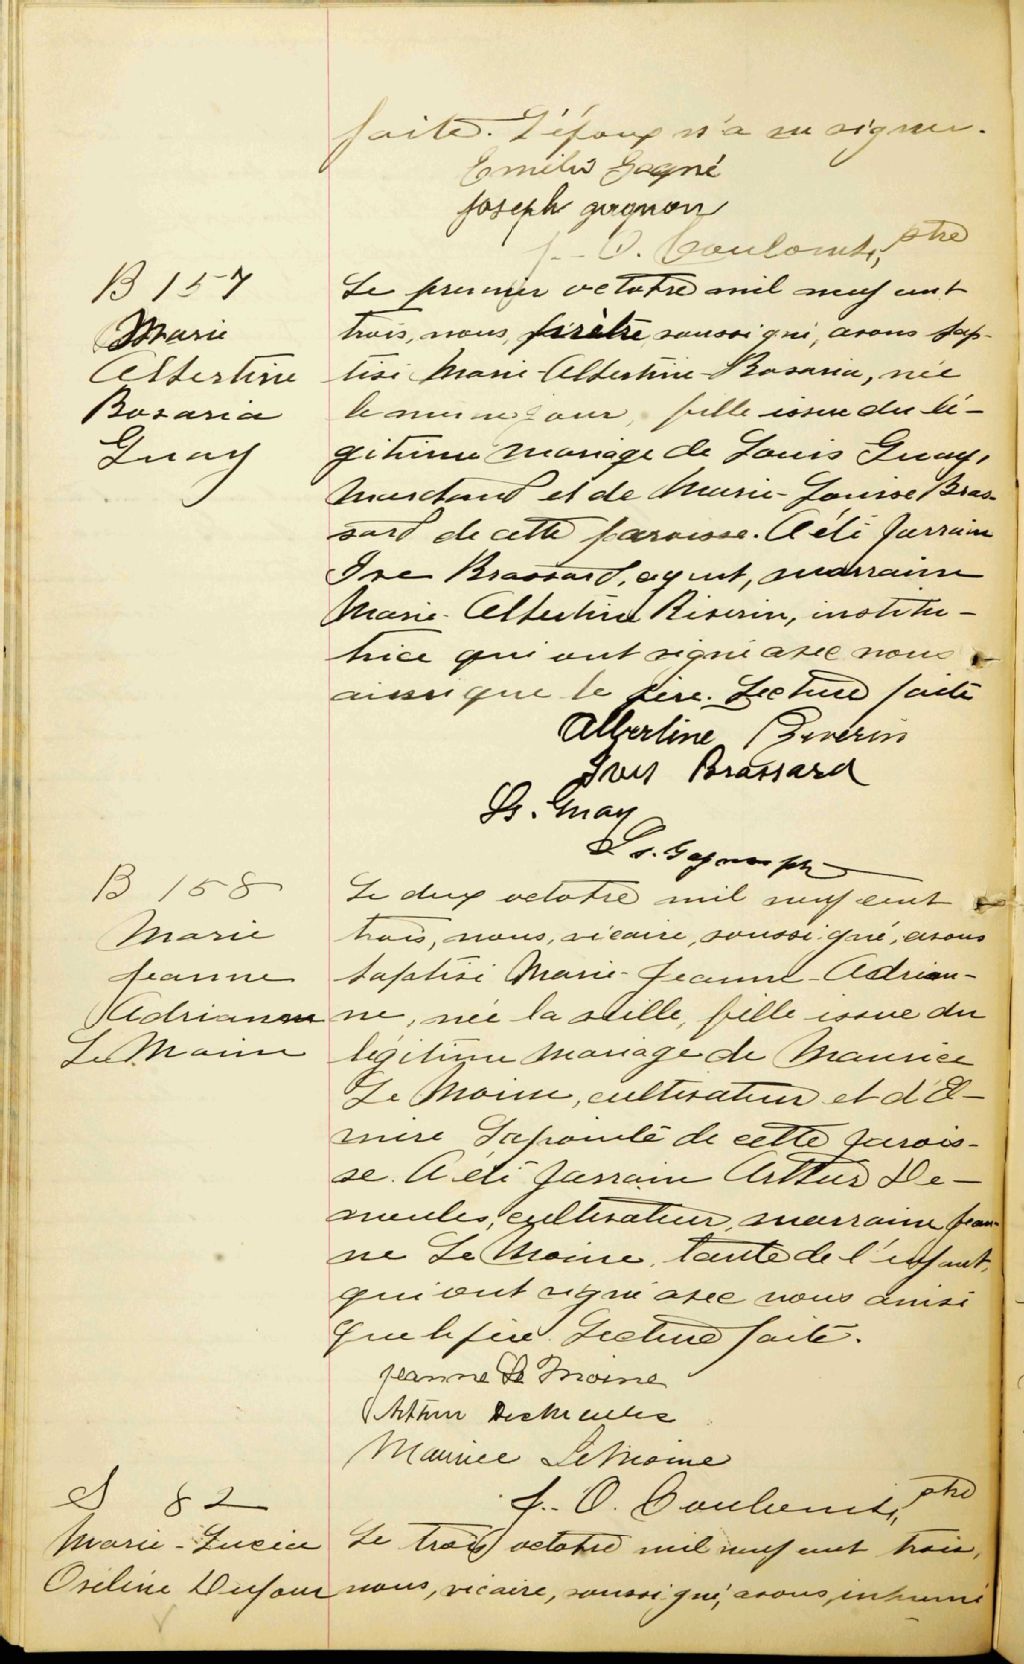 faite. L'époux n'a su signer.
Emilie Gagné
Joseph gagnon
J.-O. Coulombe, ptre
B 157
Marie
Albertine
Rosaria
Guay
Le premier octobre mil neuf cent
trois, nous, prêtre soussigné, avons bap-
tisé Marie-Albertine-Rosaria, née
le même jour, fille issue du lé-
gitime mariage de Louis Guay,
marchand et de Marie-Louise Bras-
sard de cette paroisse. A été parrain
Brassard, agent, marraine
Marie-Albertine Riverin, institu-
trice qui ont signé avec nous
ainsi que le père. Lecture faite
Albertine Riverin
Yves Brassard
Ls. Guay
B 158
Marie
Jeanne
Adrianne
Le Moine
Le deux octobre mil neuf cent
trois, nous, vicaire, soussigné, avons
baptisé Marie-Jeanne-Adrian-
ne, née la veille, fille issue du
légitime mariage de Maurice
Le Moine, cultivateur et d'El-
mire Lapointe de cette parois-
se. A été parrain Arthur De-
meules, cultivateur, marraine Jean-
ne Le Moine, tante de l'enfant,
qui ont signé avec nous ainsi
que le père. Lecture faite.
Jeanne Le Moine
Arthur DesMeules
Maurice LeMoine
J.-O. Coulombe, ptre
S 82
Marie-Lucia
Oséline Dufour
Le trois octobre mil neuf cent trois,
nous, vicaire, soussigné, avons, inhumé